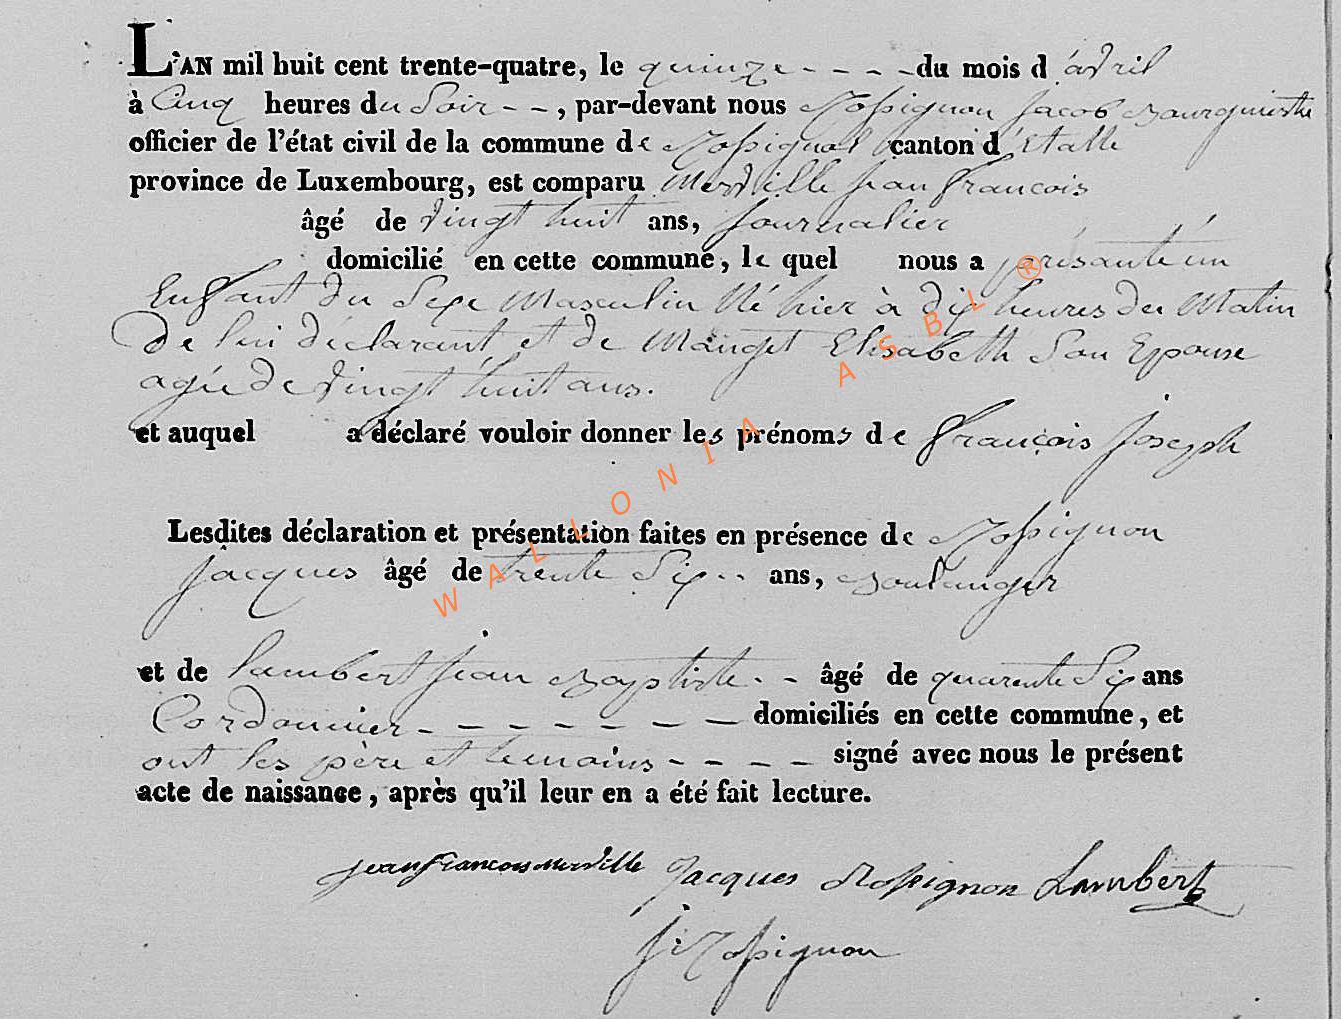 L'AN mil huit cent trente-quatre, le quinze - - - - du mois d'avril
à Cinq heures du Soir - - , par-devant nous Rossignon Jacob Bourguimestre
officier de l'état civil de la commune de Rossignol canton d'Etalle
province de Luxembourg, est comparu Merville Jean francois
âgé de vingt huit ans, Journalier
domicilié en cette commune, le quel nous a présanté un
Enfant du Sexe Masculin Né hier à dix heures du Matin
De lui déclarant et de Manget Elisabeth Son Epouse
agée De vingt huit ans.
et auquel a déclaré vouloir donner les prénoms de françois Joseph
Lesdites déclaration et présentation faites en présence de Rossignon
Jacques âgé de trente Six - - ans, Boulanger
et de lambert Jean Baptiste - - âgé de quarente Six ans
Cordonnier - - - - - - - domiciliés en cette commune, et
ont les père et temoins - - - - signé avec nous le présent
acte de naissance, après qu'il leur en a été fait lecture.
jean francois merville Jacques Rossignon Lambert
J: Rossignon
WALLONIA ASBL ®